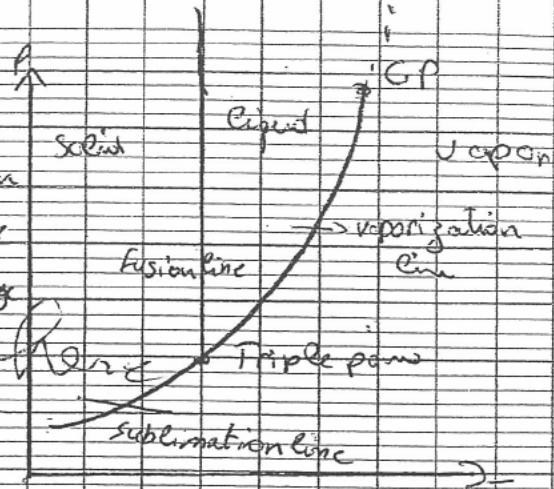 P
CP
Solid
liquid
vapor
vaporization
line
Fusion line
Triple point
sublimation line
T